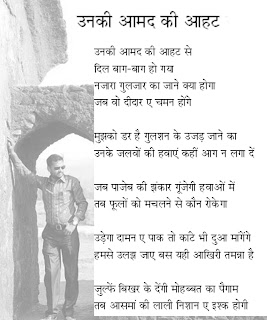 उनकी आमद की आहट
उनकी आमद की आहट से
दिल बाग-बाग हो गया
नजारा गुलजार का जाने क्या होगा
जब वो दीदार ए चमन होंगे
मुझको डर है गुलशन के उजड़ जाने का
उनके जलवों की हवाएं कहीं आग न लगा दें
जब पाजेब की झंकार गूंजेगी हवाओं में
तब फूलों को मचलने से कौन रोकेगा
उड़ेगा दामन ए पाक तो कांटे भी दुआ मांगेंगे
हमसे उलझ जाए बस यही आखिरी तमन्ना है
जुल्फें बिखर के देंगी मोहब्बत का पैगाम
तब आसमां की लाली निशान ए इश्क होगी